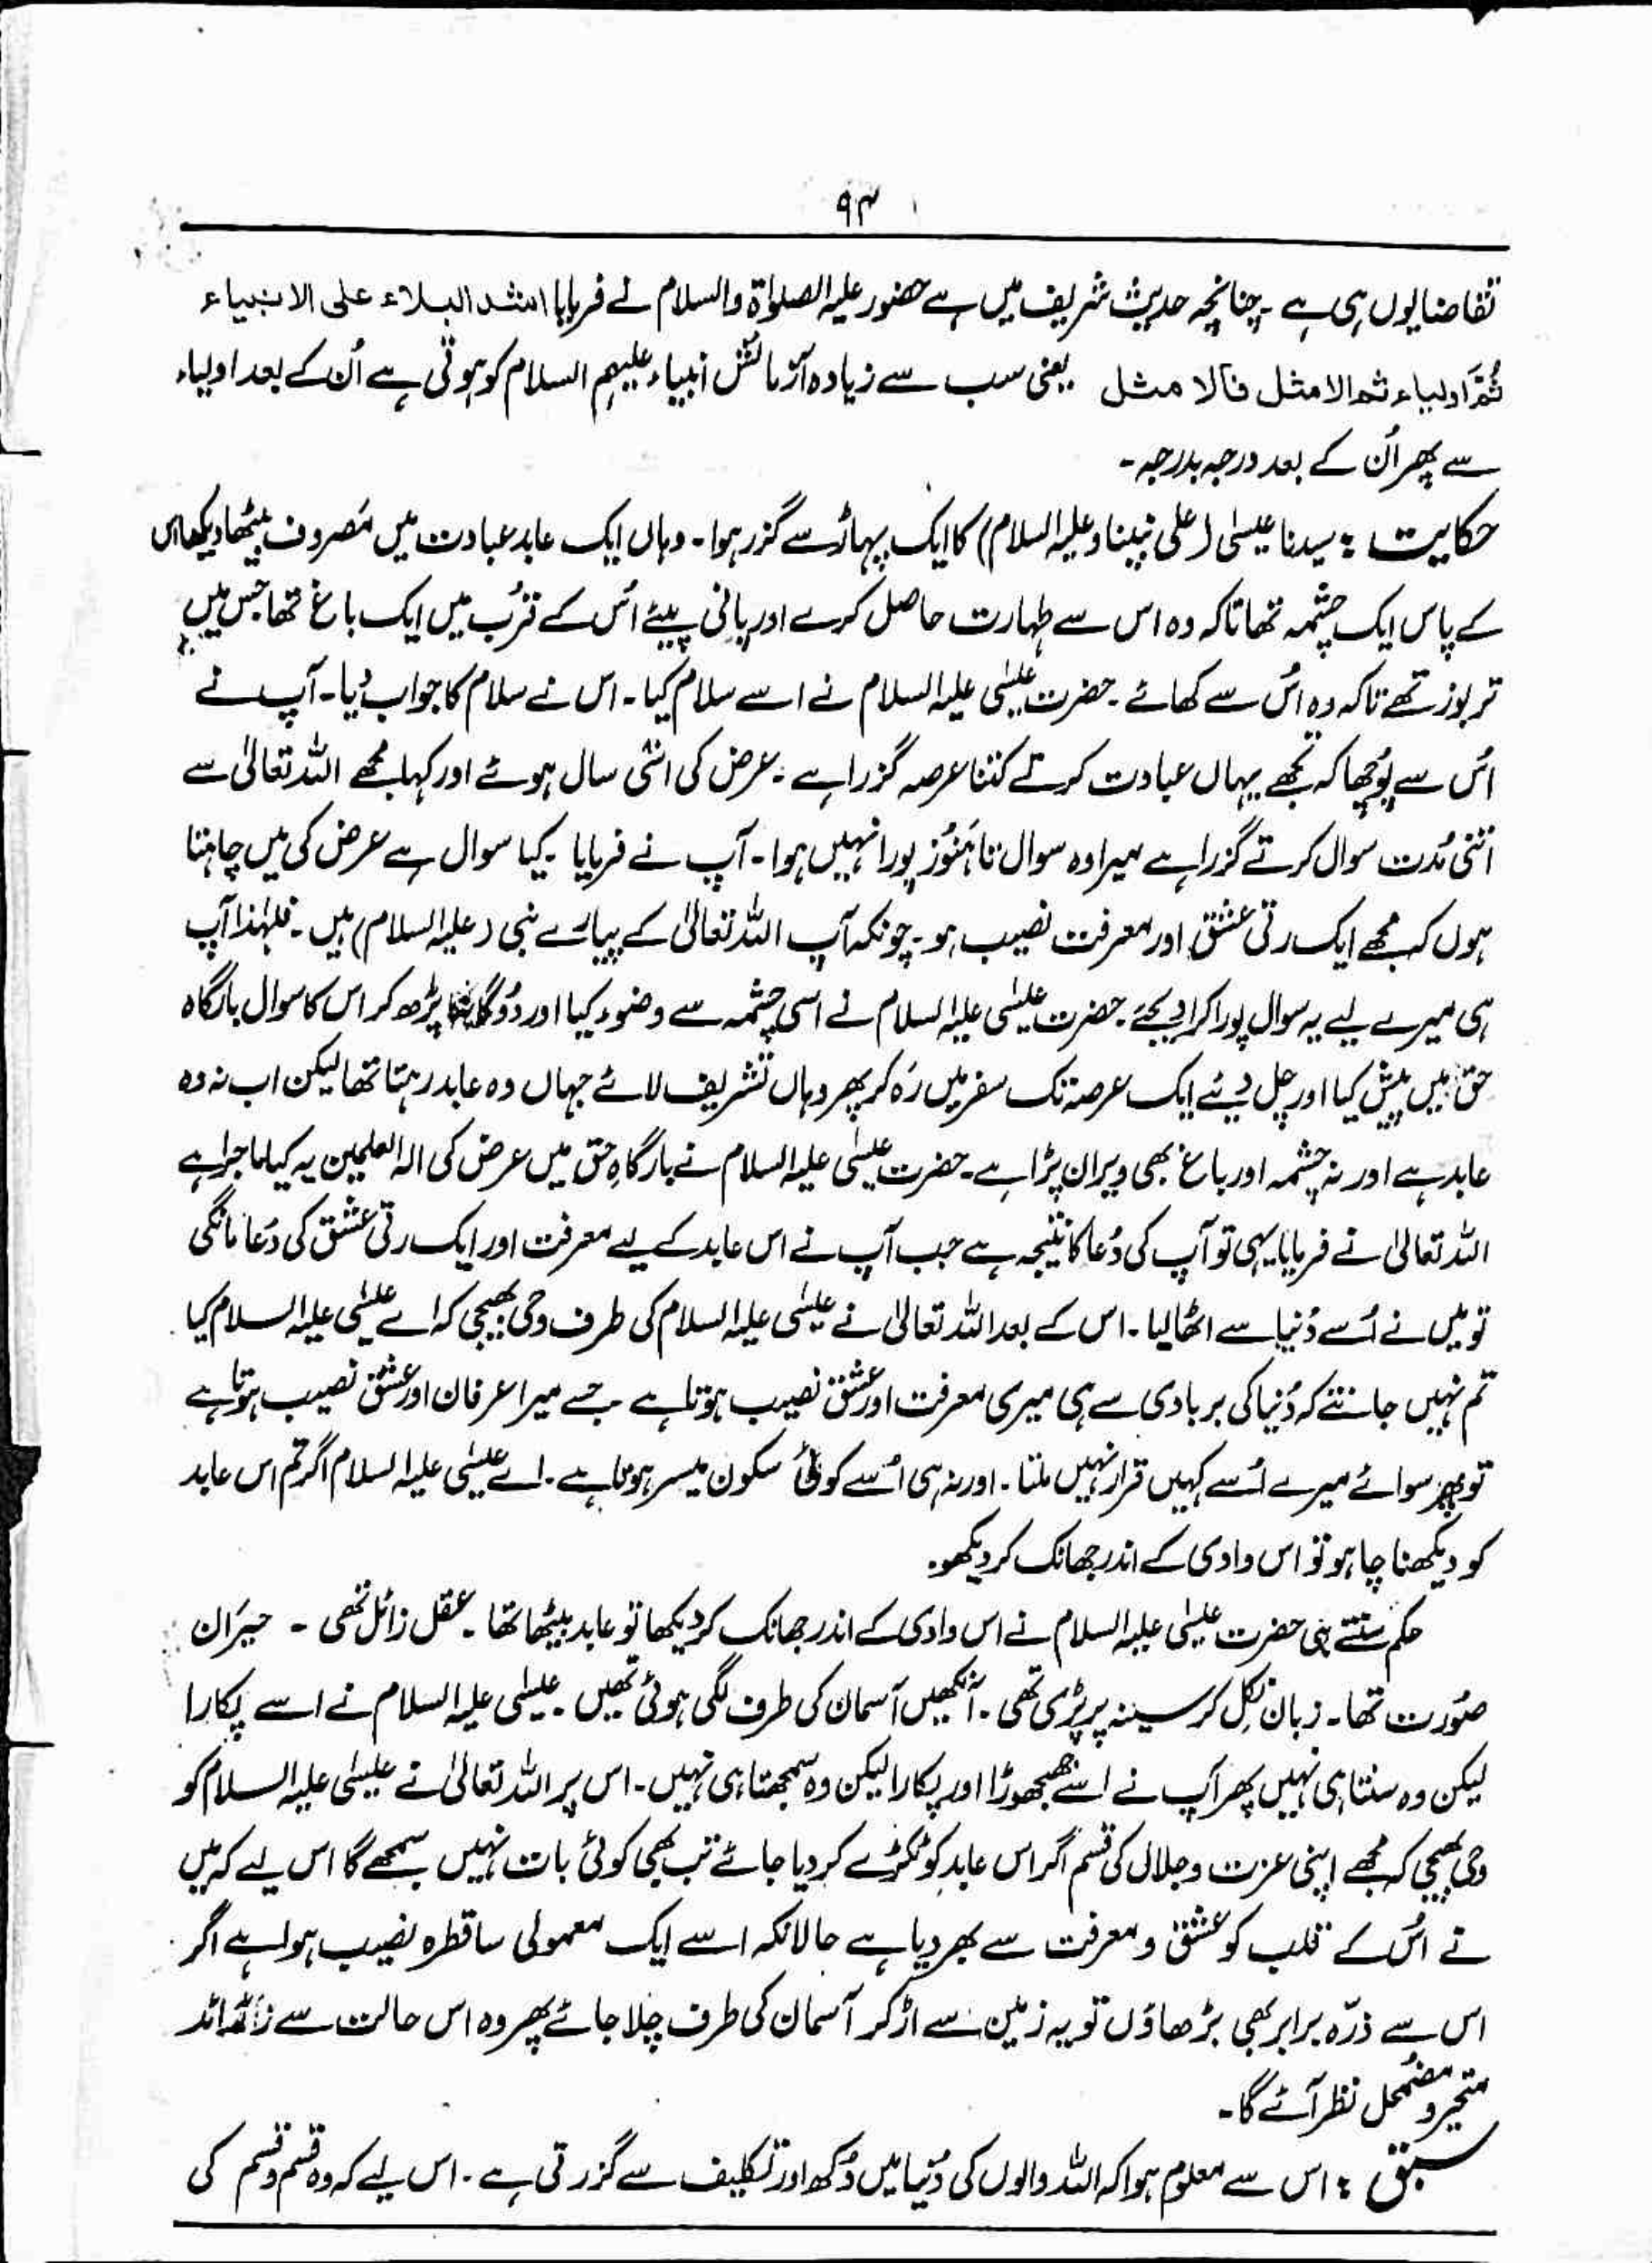 ۹۳
تقاضا یوں ہی ہے ۔ چنانچہ حدیث شریف میں ہے حضور علیہ الصلواۃ والسلام نے فرمایا اشد البلاء علی الانبیاء
ثُمَّ اولیاء ثم الامثل فالا مثل یعنی سب سے زیادہ آزمائش انبیاء علیہم السلام کو ہوتی ہے اُن کے بعد اولیاء
سے پھر اُن کے بعد درجہ بدرجہ ۔
حکایت : سیدنا عیسٰی (علی نبینا وعلیہ السلام) کا ایک پہاڑ سے گزر ہوا ۔ وہاں ایک عابد عبادت میں مَصروف بیٹھا دیکھا اس
کے پاس ایک چشمہ تھا تاکہ وہ اس سے طہارت حاصل کرے اور پانی پیئے اُس کے قرُب میں ایک باغ تھا جس میں
تربوز تھے تاکہ وہ اُس سے کھائے ۔ حضرت عیسٰی علیہ السلام نے اسے سلام کیا ۔ اس نے سلام کا جواب دیا ۔ آپ نے
اُس سے پوُچھا کہ تجھے یہاں عبادت کرتے کتنا عرصہ گزرا ہے ۔ عرض کی اسّی سال ہوئے اور کہا مجھے اللہ تعالیٰ سے
اتنی مُدت سوال کرتے گزرا ہے میرا وہ سوال تا ہَنُوز پورا نہیں ہوا ۔ آپ نے فرمایا ۔ کیا سوال ہے عرض کی میں چاہتا
ہوں کہ مجھے ایک رتی عشق اور معرفت نصیب ہو ۔ چونکہ آپ اللہ تعالیٰ کے پیارے نبی (علیہ السلام) ہیں ۔ فلہٰذا آپ
ہی میرے لیے یہ سوال پورا کرا دیجئے ۔ حضرت عیسٰی علیہ السلام نے اسی چشمہ سے وضوء کیا اور دوُگانہ پڑھ کر اس کا سوال بارگاہ
حق میں پیش کیا اور چل دیئے ایک عرصہ تک سفر میں رَہ کر پھر وہاں تشریف لائے جہاں وہ عابد رہتا تھا لیکن اب نہ وہ
عابد ہے اور نہ چشمہ اور باغ بھی ویران پڑا ہے ۔ حضرت عیسٰی علیہ السلام نے بارگاہِ حق میں عرض کی الہ العلمین یہ کیا ماجرا ہے
اللہ تعالیٰ نے فرمایا یہی تو آپ کی دُعا کا نتیجہ ہے جب آپ نے اس عابد کے لیے معرفت اور ایک رتی عشق کی دُعا مانگی
تو میں نے اُسے دُنیا سے اٹھالیا ۔ اس کے بعد اللہ تعالیٰ نے عیسٰی علیہ السلام کی طرف وحی بھیجی کہ اے عیسٰی علیہ السلام کیا
تم نہیں جانتے کہ دُنیا کی بربادی سے ہی میری معرفت اور عشق نصیب ہوتا ہے ۔ جسے میرا عرفان اور عشق نصیب ہوتا ہے
تو پھر سوائے میرے اُسے کہیں قرار نہیں ملتا ۔ اور نہ ہی اُسے کوئی سکون میسر ہوتا ہے ۔ اے عیسٰی علیہ السلام اگر تم اس عابد
کو دیکھنا چاہو تو اس وادی کے اندر جھانک کر دیکھو ۔
حکم سنتے ہی حضرت عیسٰی علیہ السلام نے اس وادی کے اندر جھانک کر دیکھا تو عابد بیٹھا تھا ۔ عقل زائل تھی ۔ حیَران
صوُرت تھا ۔ زبان نکل کر سینہ پر پڑی تھی ۔ آنکھیں آسمان کی طرف لگی ہوئی تھیں ۔ عیسٰی علیہ السلام نے اسے پکارا
لیکن وہ سنتا ہی نہیں پھر آپ نے اسے جھنجھوڑا اور پکارا لیکن وہ سمجھتا ہی نہیں ۔ اس پر اللہ تعالیٰ نے عیسٰی علیہ السلام کو
وحی بھیجی کہ مجھے اپنی عزت وجلال کی قسم اگر اس عابد کو ٹکڑے کر دیا جائے تب بھی کوئی بات نہیں سمجھے گا اس لیے کہ میں
نے اُس کے قلب کو عشق و معرفت سے بھر دیا ہے حالانکہ اسے ایک معمولی سا قطرہ نصیب ہوا ہے اگر
اس سے ذرّہ برابر بھی بڑھاوَں تو یہ زمین سے اڑ کر آسمان کی طرف چلا جائے پھر وہ اس حالت سے زائد
متحیر و مضمحل نظر آئے گا ۔
سبق : اس سے معلوم ہوا کہ اللہ والوں کی دُنیا میں دُکھ اور تکلیف سے گزرتی ہے ۔ اس لیے کہ وہ قسم وقسم کی